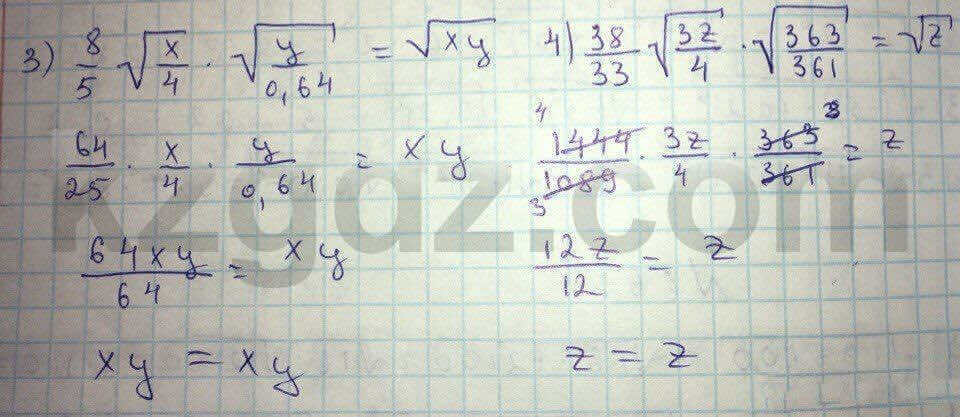 3) 8/5 √(x/4) · √(y/0,64) = √(xy)
64/25 · x/4 · y/0,64 = xy
64xy/64 = xy
xy = xy
4) 38/33 √(3z/4) · √(363/361) = √z
4 1444/1089 3 · 3z/4 · 363/361 3 = z
12z/12 = z
z = z
kzgdz.com